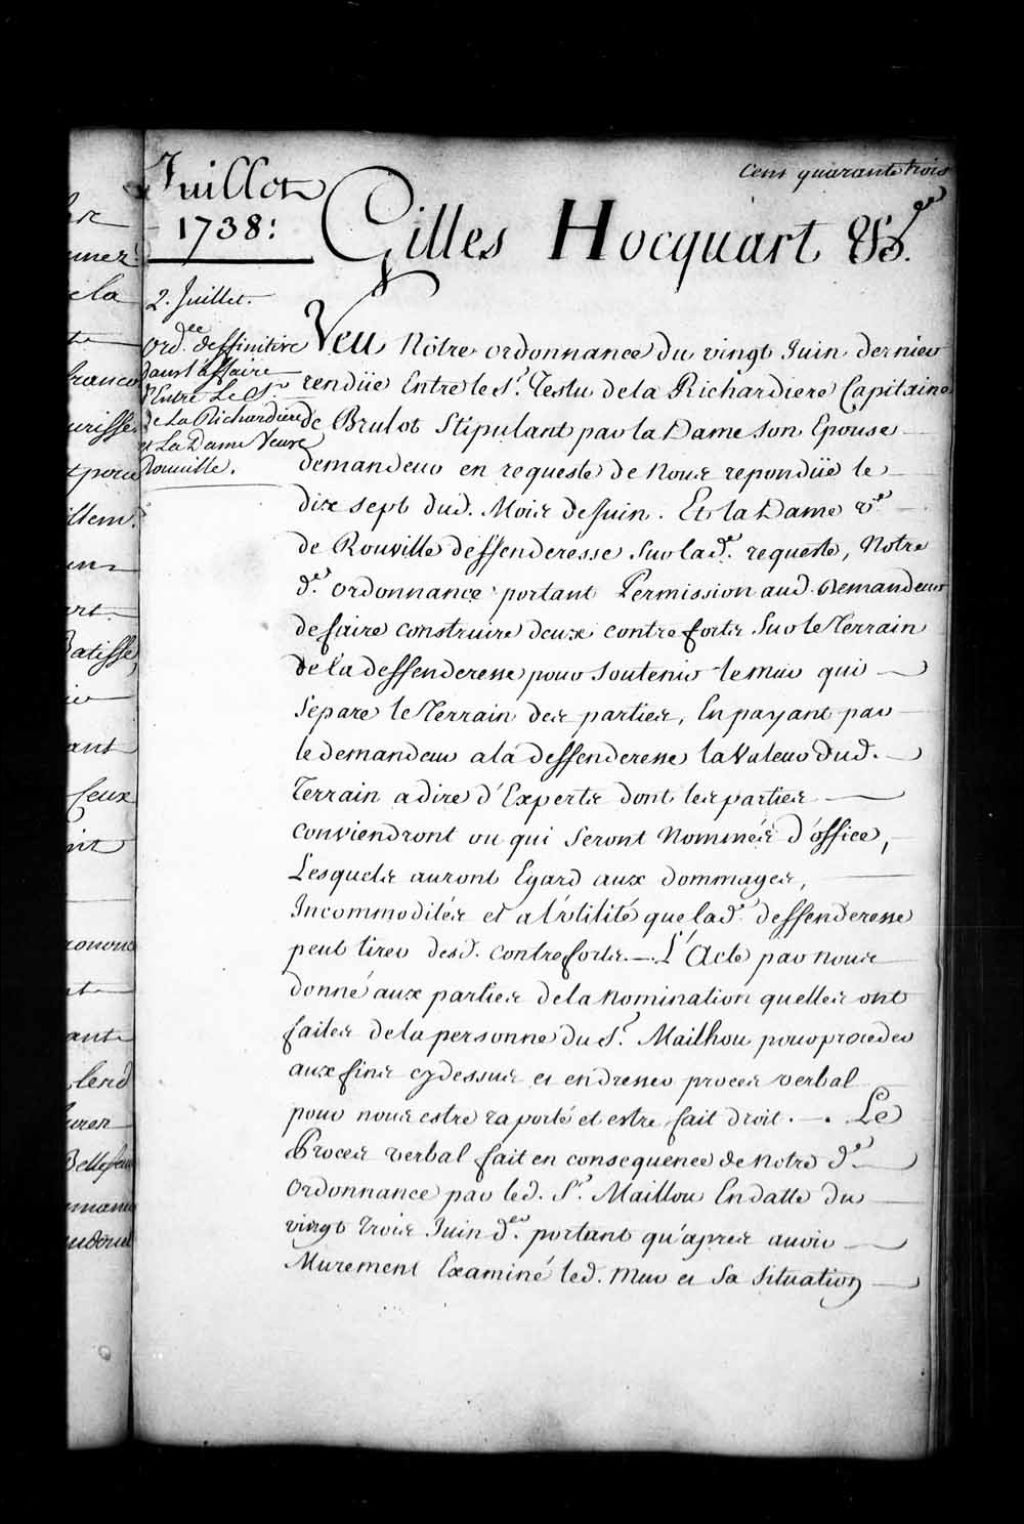 Cent quarante trois
Juillet
1738:
Gilles Hocquart &c.
2. Juillet.
Ord.ce deffinitive
dans l'affaire
Entre Le S.r
de La Richardiere
et La Dame Veuve
Rouville.
Veu Nôtre ordonnance du vingt Juin dernier
rendüe Entre le S.r Testu de la Richardiere Capitaine
de Brulot Stipulant par la Dame son Epouse
demandeur en requeste de Nous repondüe le
dix sept dud. Mois de Juin. Et la Dame v.e
de Rouville deffenderesse Sur lad.e requeste, Notre
d.e ordonnance portant Permission aud. Demandeur
de faire construire deux contreforts Sur le Terrain
de la deffenderesse pour soutenir le mur qui
Separe le Terrain des parties, En payant par
le demandeur a la deffenderesse la Valeur Dud.
Terrain a dire d'Experts dont les parties
conviendront ou qui Seront Nommés d'office,
Lesquels auront Egard aux dommages,
Incommodités et a l'utilité que lad.e deffenderesse
peut tirer desd. contreforts. — L'Acte par nous
donné aux parties de la nomination quelles ont
faites de la personne du S.r Mailhou pour proceder
aux fins cy dessus et en dresser procès verbal
pour nous estre raporté et estre fait droit. —. Le
Procès verbal fait en consequence de Notre d.e
Ordonnance par led. S.r Maillou En datte du
vingt trois Juin d.er portant qu'après avoir
Murement Examiné led. Mur et Sa Situation
la
Ceux